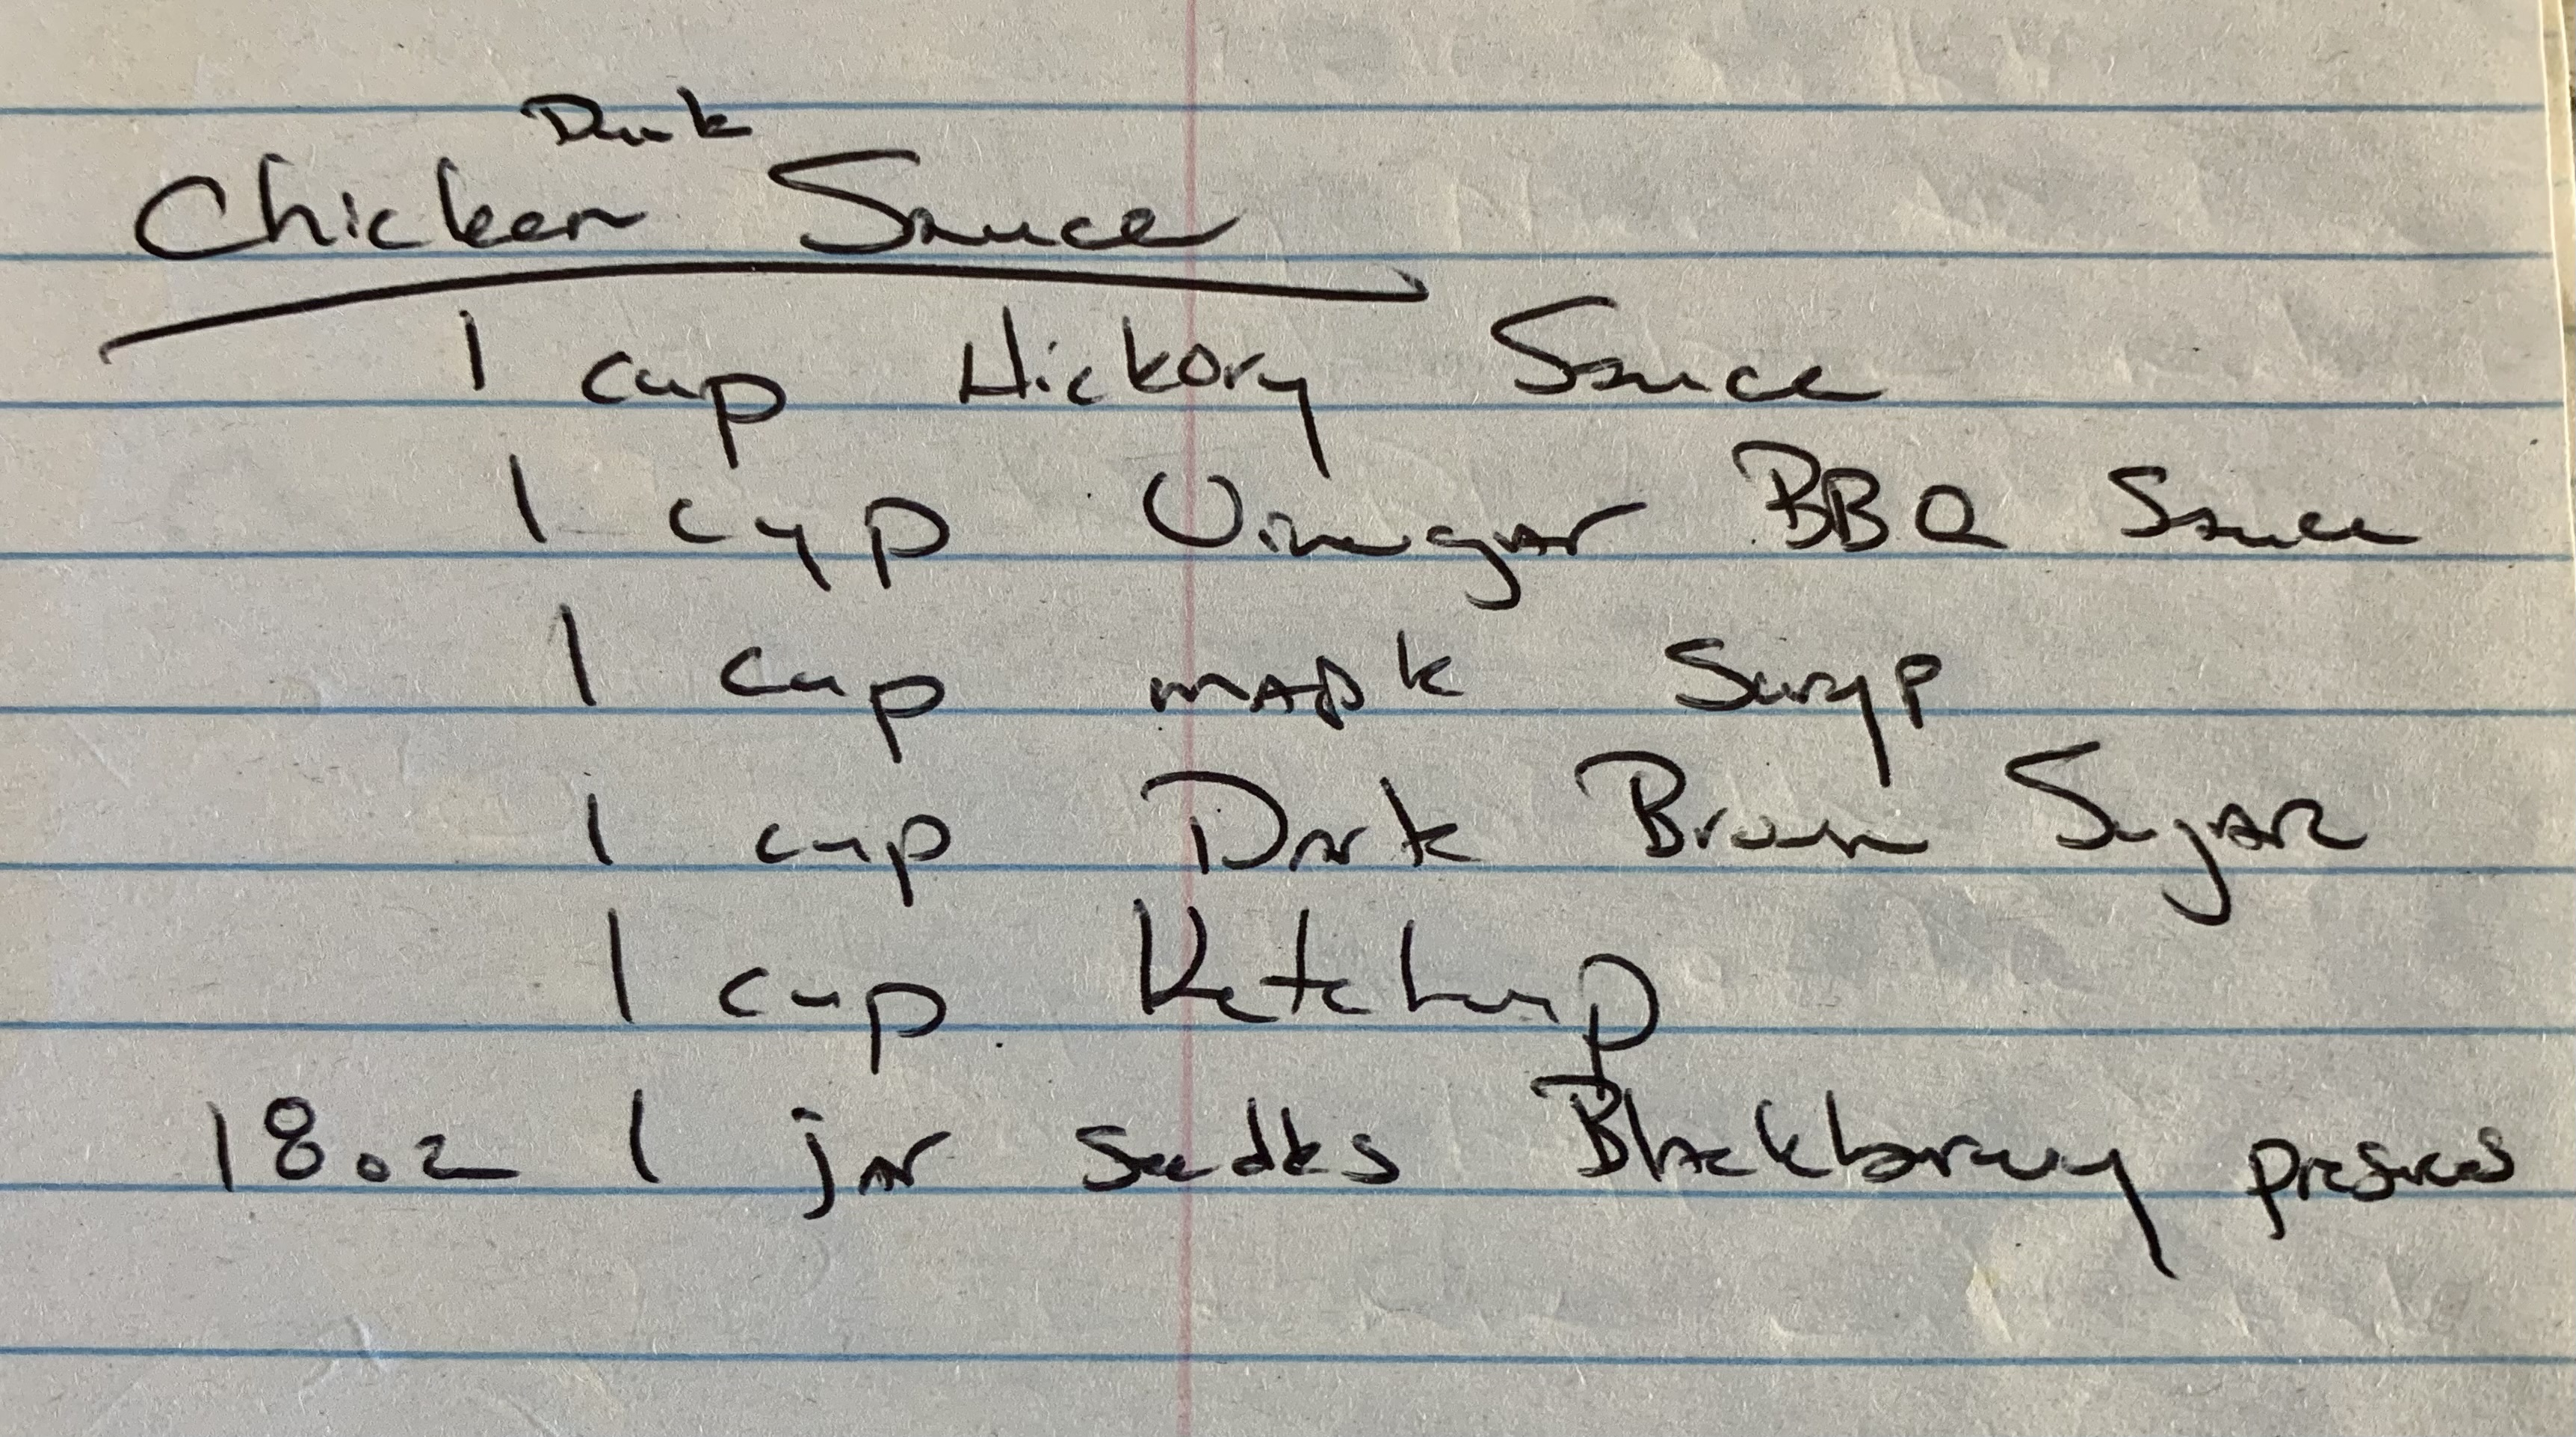 Dunk
Chicken Sauce
1 cup Hickory Sauce
1 cyp Vinegar BBQ Sauce
1 cup maple Suryp
1 cup Dark Brown Sugar
1 cup Ketchup
18oz 1 jar seedles Blackberry preserves